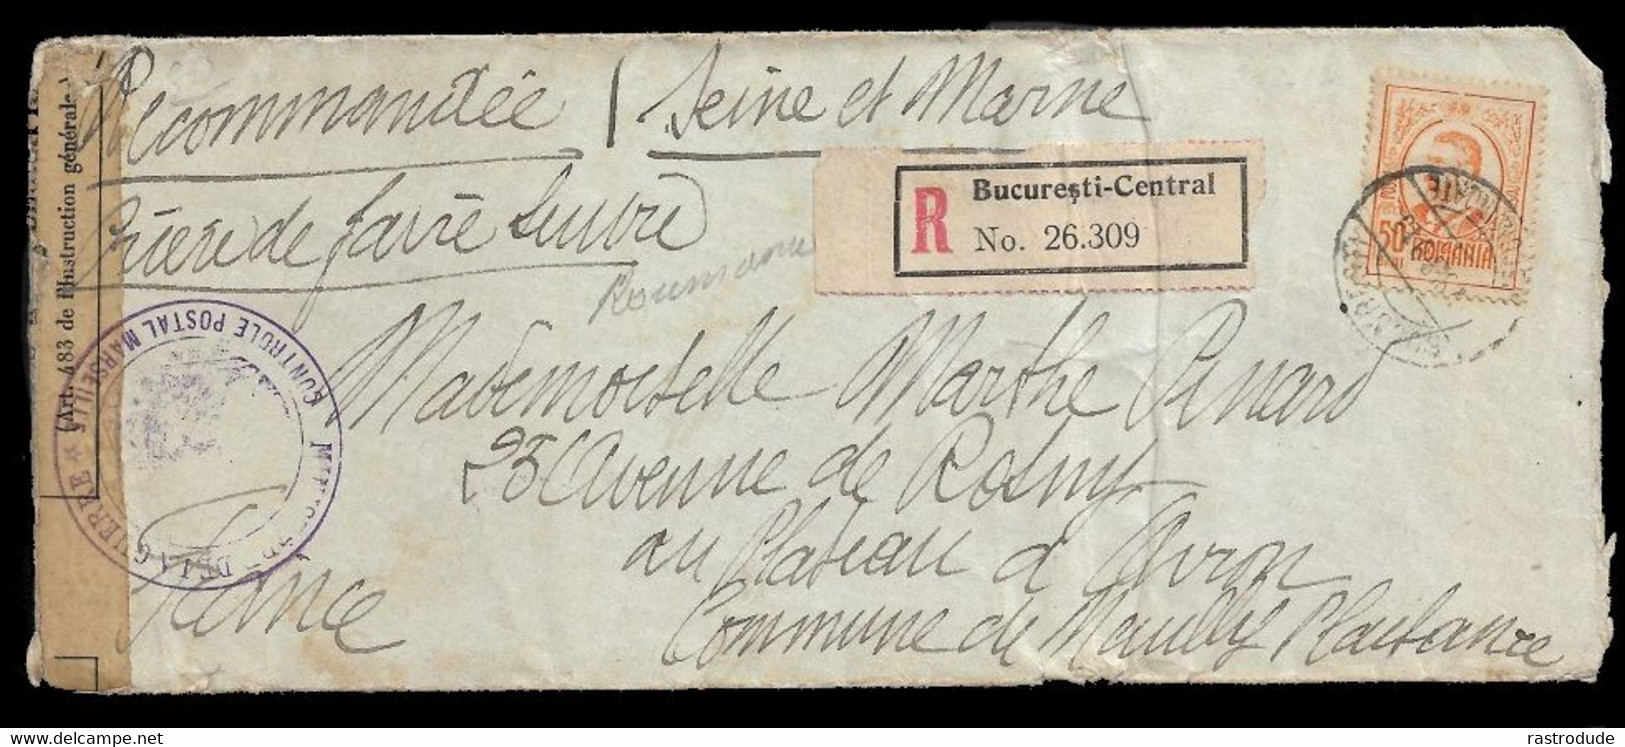 Recommandée / Seine et Marne
Prière de faire suivre
Roumanie
R
Bucureşti-Central
No. 26.309
50
ROMANIA
Mademoiselle Marthe Pinard
23 Avenue de Rosny
au Plateau d'Avron
Commune de Neuilly Plaisance
France
(Art. 483 de l'Instruction générale.)
CONTROLE POSTAL MARSEILLE
DE LA GUERRE
delcampe.net
rastrodude